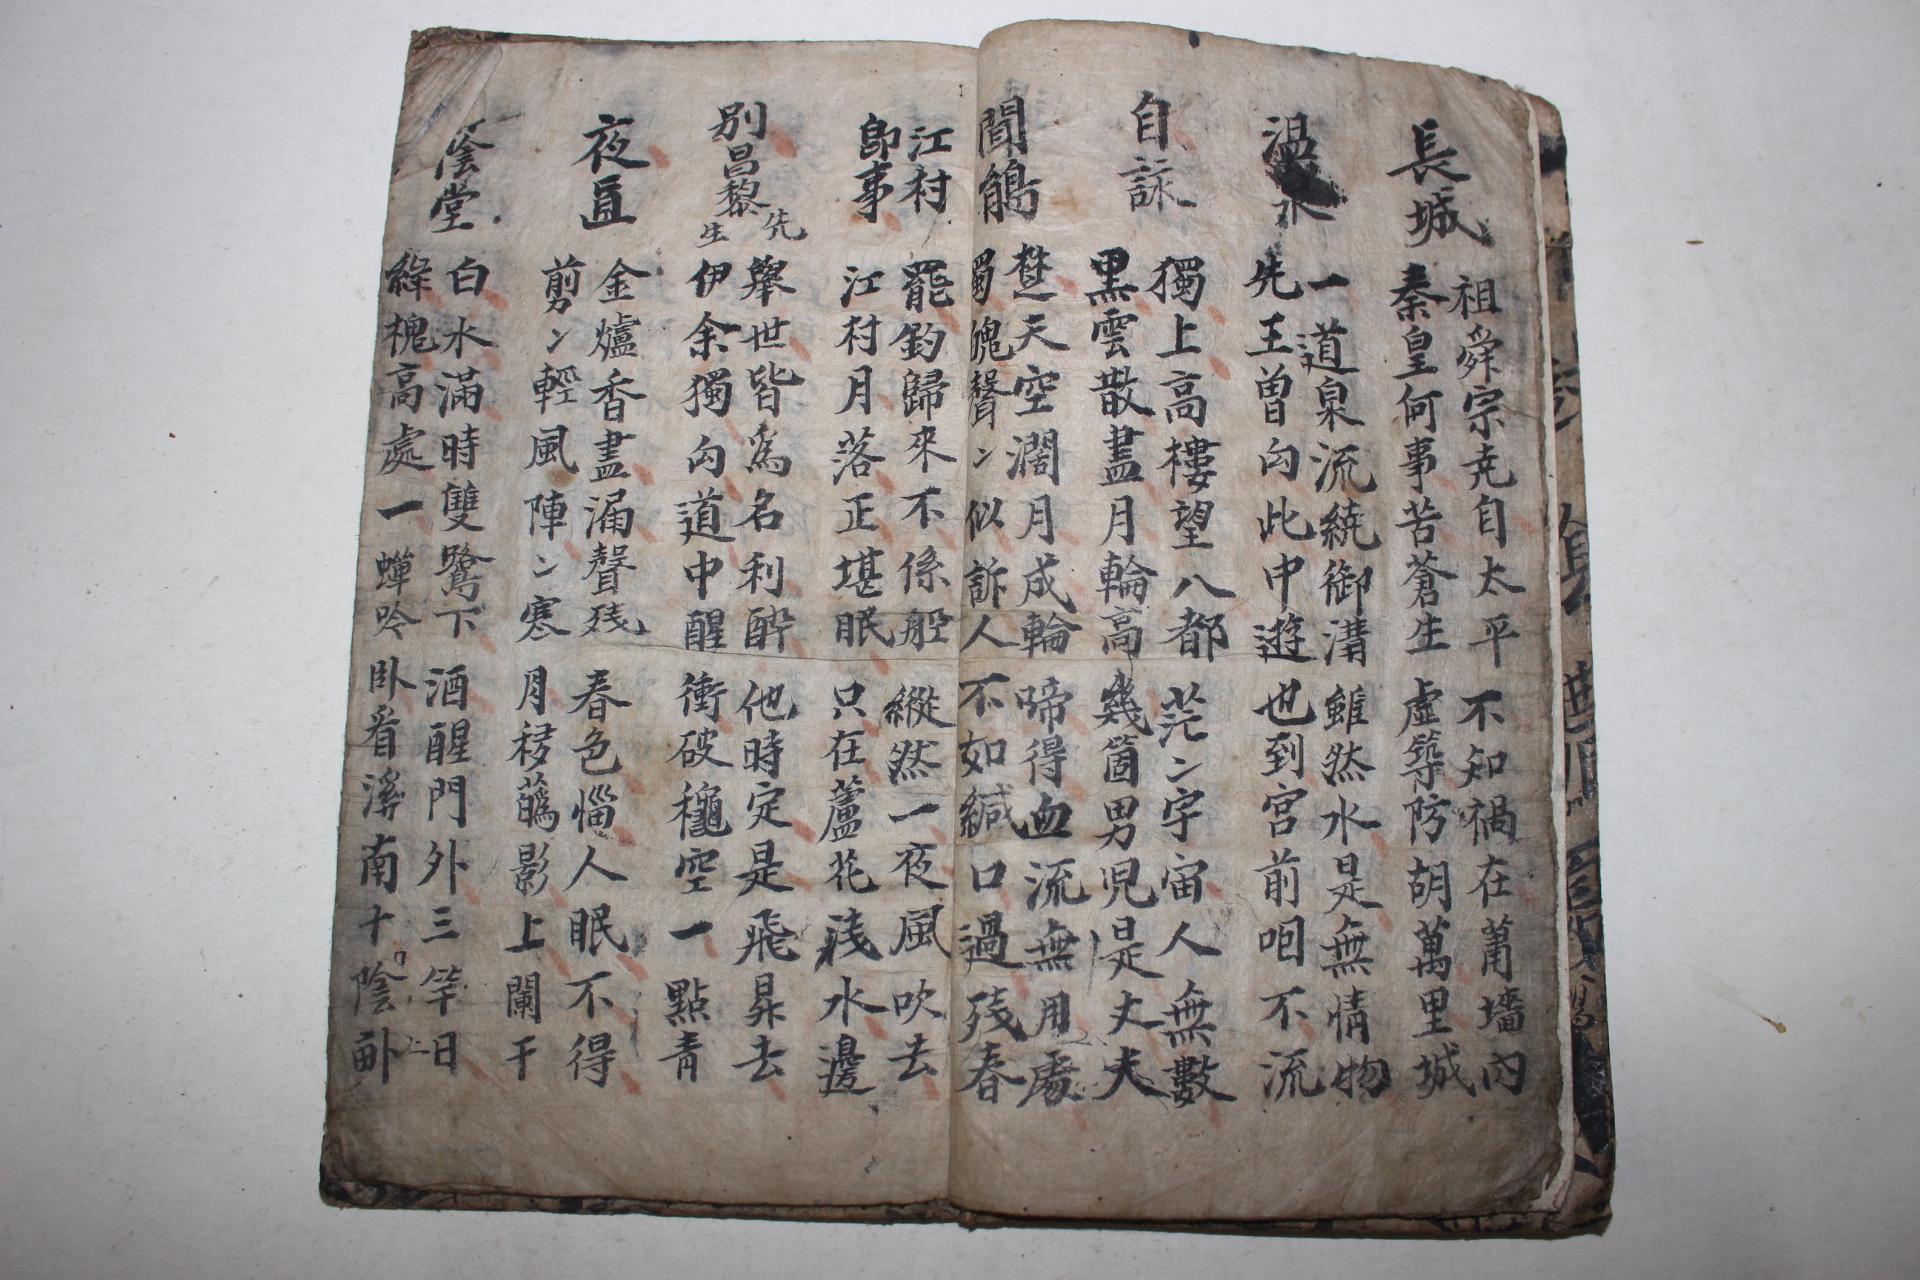 長城
祖舜宗尭自太平 不知禍在莆墻內
秦皇何事苦蒼生 虛築防胡萬里城
溫水
一道泉流繞御溝 雖然水是無情物
先王曾向此中遊 也到宮前咽不流
自詠
獨上高樓望八都 茫〻宇宙人無數
黑雲散盡月輪高 幾箇男児是丈夫
聞鵑
楚天空濶月成輪 啼得血流無用處
蜀魄聲〻似訴人 不如緘口過殘春
江村
即事
罷釣歸來不係舡 縱然一夜風吹去
江村月落正堪眠 只在蘆花淺水邊
別昌黎先
生
舉世皆爲名利醉 他時定是飛昇去
伊余獨向道中醒 衝破秋空一點青
夜直
金爐香盡漏聲殘 春色惱人眠不得
剪〻輕風陣〻寒 月移蘤影上闌干
陰堂
白水滿時雙鷺下 酒醒門外三竿日
綠槐高處一蟬吟 卧看溪南十陰畝